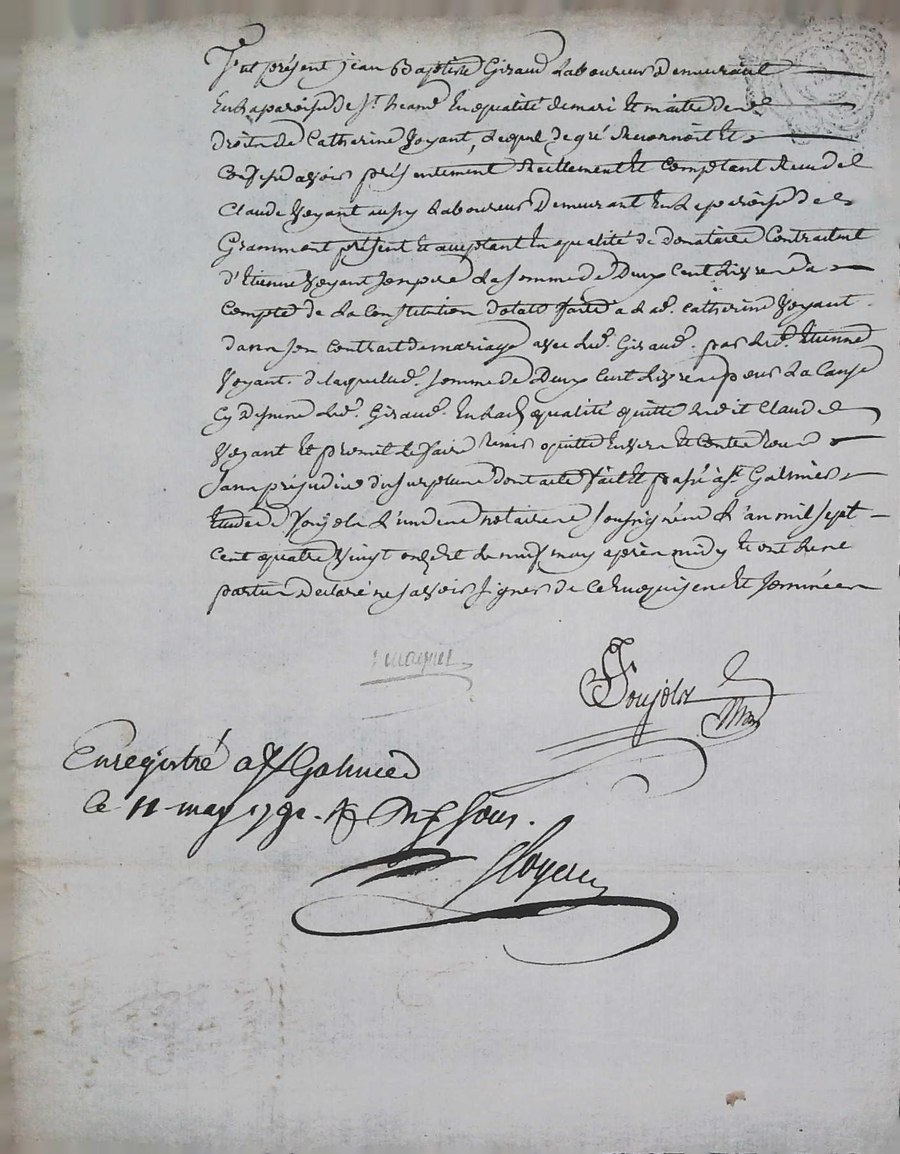 fut présent jean Baptiste Giraud Laboureur Demeurant
En La paroisse de St. heand En qualité de mari Et maitre des
droits de Catherine Voyant, Lequel de gré Reconnoit Et
Confesse avoir présentement Réellement Et Comptant Reçu de
Claude Voyant aussy Laboureur Demeurant En La paroisse de
Grammont présent Et acceptant En qualité de donataire Contractuel
d'Etienne Voyant son père La somme de Deux Cent Livres a
Compte de La Constitution dotale faite a Lad. Catherine Voyant
dans son Contrat de mariage avec Led. Giraud. par Led. Etienne
Voyant. de laquelle d. somme de Deux Cent Livres pour La Cause
Cy Dessus Led. Giraud. En Lad. qualité quitte Ledit Claude
Voyant Et promet Le faire tenir quitte Envers Et Contre tous
Sans préjudice du surplus dont acte fait Et passé a St. Galmier
Etude de Poujolz L'un des notaires soussignés L'an mil sept
Cent quatre Vingt onze Et Le neuf may après midy Et ont Les
parties Déclaré ne savoir signer de Ce Enquises Et sommées
Poujolz
Enregistré a St Galmier
Le 11 may 1791. R sous.